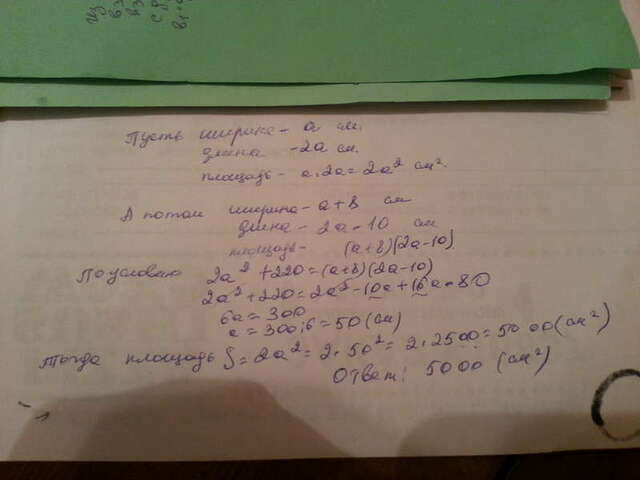 Пусть ширина - a см.
длина - 2a см.
площадь - a·2a = 2a² см².
А потом ширина - a+8 см
длина - 2a-10 см
площадь - (a+8)(2a-10)
По условию 2a² + 220 = (a+8)(2a-10)
2a² + 220 = 2a² - 10a + 16a - 80
6a = 300
a = 300:6 = 50 (см)
Тогда площадь S = 2a² = 2·50² = 2·2500 = 5000 (см²)
Ответ: 5000 (см²)